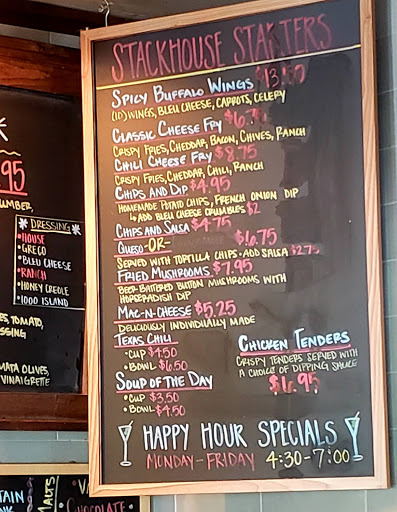 STACKHOUSE STARTERS
SPICY BUFFALO WINGS $13.50
(10) WINGS, BLEU CHEESE, CARROTS, CELERY
CLASSIC CHEESE FRY
CRISPY FRIES, CHEDDAR, BACON, CHIVES, RANCH
CHILI CHEESE FRY $8.75
CRISPY FRIES, CHEDDAR, CHILI, RANCH
CHIPS AND DIP $4.95
HOMEMADE POTATO CHIPS, FRENCH ONION DIP
ADD BLEU CHEESE CRUMBLES $2
CHIPS AND SALSA $4.75
QUESO -OR- $6.75
SERVED WITH TORTILLA CHIPS • ADD SALSA $2.75
FRIED MUSHROOMS $7.95
BEER-BATTERED BUTTON MUSHROOMS WITH
HORSERADISH DIP
MAC-N-CHEESE $5.25
DELICIOUSLY INDIVIDUALLY MADE
TEXAS CHILI
• CUP $4.50
• BOWL $6.50
SOUP OF THE DAY
• CUP $3.50
• BOWL $4.50
CHICKEN TENDERS
CRISPY TENDERS SERVED WITH
A CHOICE OF DIPPING SAUCE
$6.95
HAPPY HOUR SPECIALS
MONDAY - FRIDAY 4:30-7:00
95
UMBER,
DRESSING
• HOUSE
• GRECO
• BLEU CHEESE
• RANCH
• HONEY CREOLE
• 1000 ISLAND
ES, TOMATO,
SSING
MATA OLIVES,
VINAIGRETTE
TAIN
MALTS
CHOCOLATE